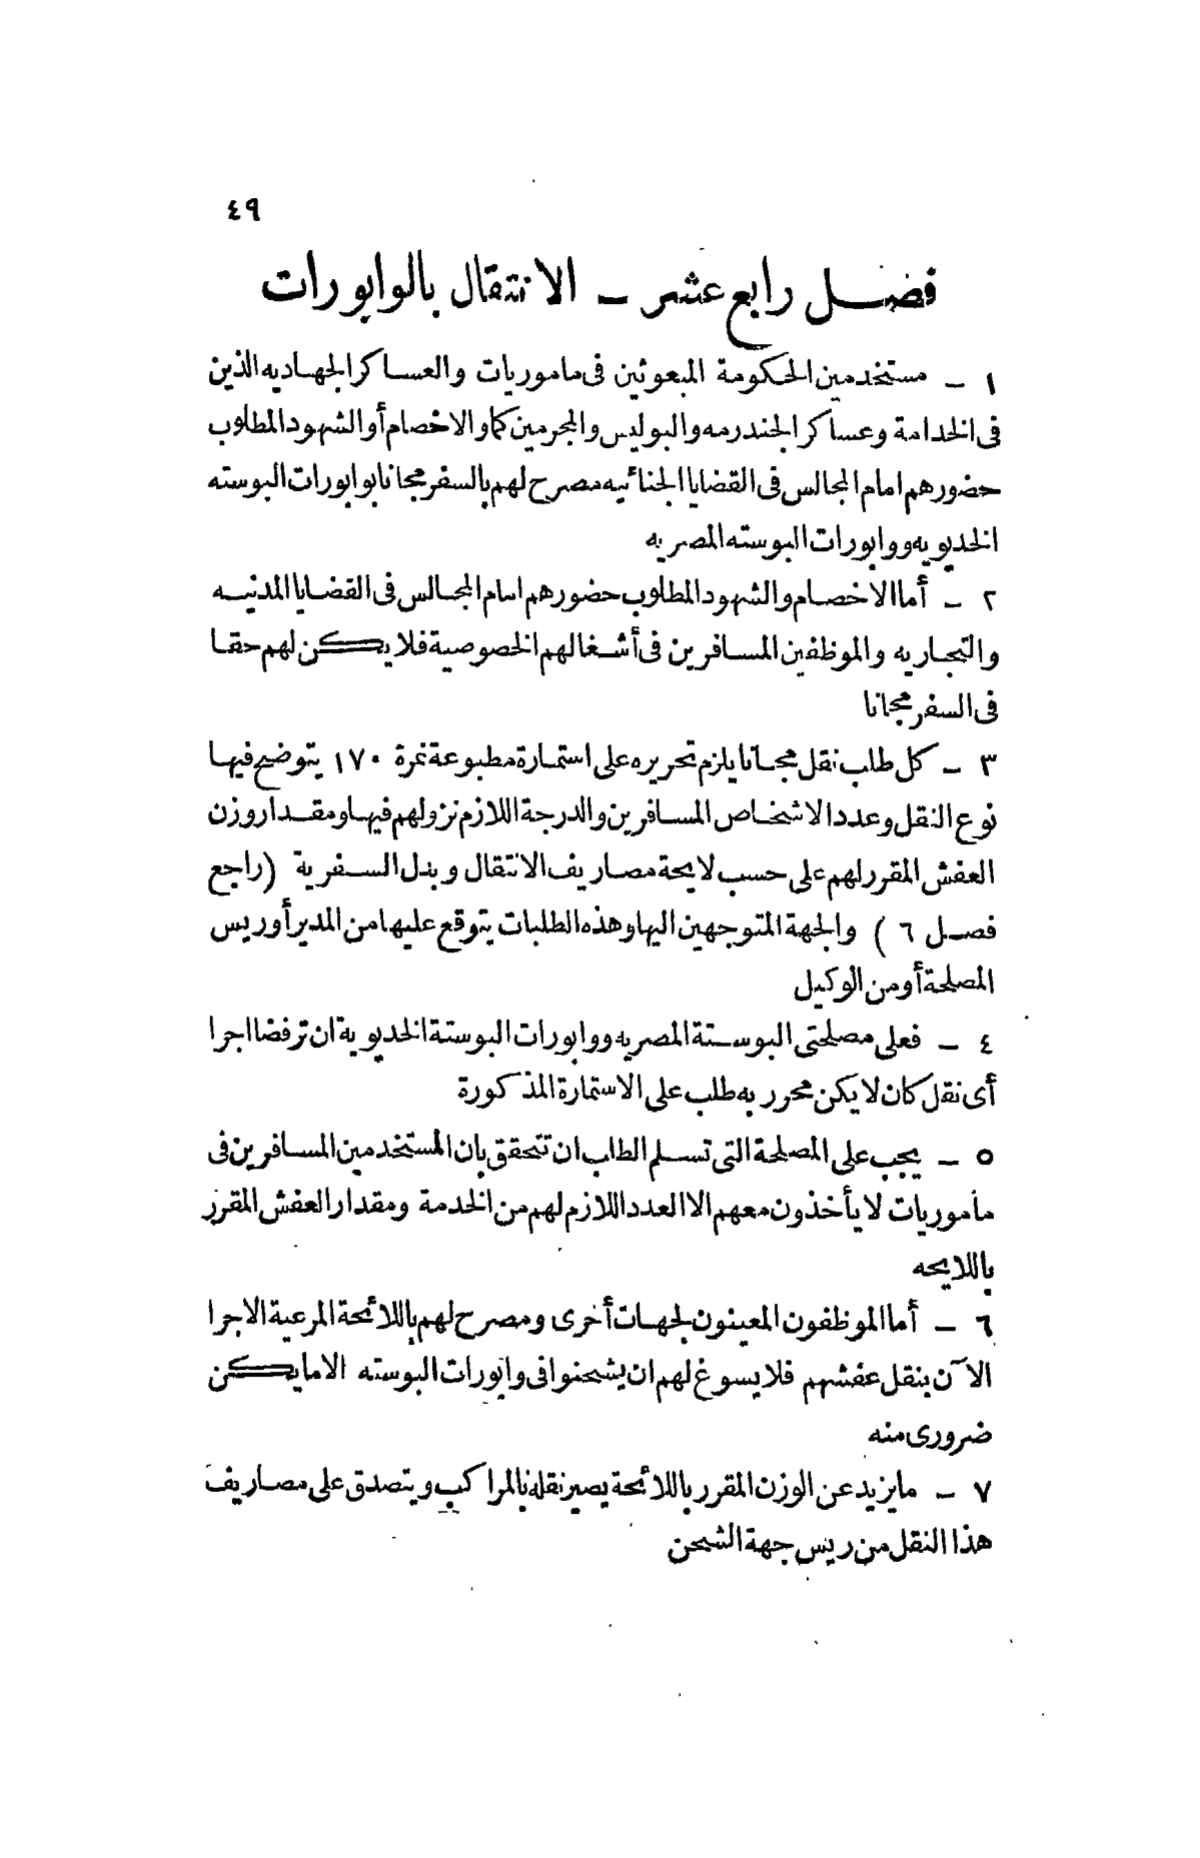 ٤٩
فصل رابع عشر — الانتقال بالوابورات
١ — مستخدمين الحكومة المبعوثين فى ماموريات والعساكر الجهاديه الذين
فى الخدامة وعساكر الجندرمه والبوليس والمجرمين كما والاخصام أو الشهود المطلوب
حضورهم امام المجالس فى القضايا الجنائيه مصرح لهم بالسفر مجانا بوابورات البوسته
الخديويه ووابورات البوسته المصريه
٢ — أما الاخصام والشهود المطلوب حضورهم امام المجالس فى القضايا المدنيه
والتجاريه والموظفين المسافرين فى أشغالهم الخصوصية فلا يكن لهم حقا
فى السفر مجانا
٣ — كل طلب نقل مجانا يلزم تحريره على استمارة مطبوعة نمرة ١٧٠ يتوضح فيها
نوع النقل وعدد الاشخاص المسافرين والدرجة اللازم نزولهم فيها ومقدار وزن
العفش المقرر لهم على حسب لايحة مصاريف الانتقال وبدل السفرية (راجع
فصل ٦) والجهة المتوجهين اليها وهذه الطلبات يتوقع عليها من المدير أو ريس
المصلحة أو من الوكيل
٤ — فعلى مصلحتى البوستة المصريه ووابورات البوستة الخديوية ان ترفضا اجرا
أى نقل كان لا يكن محرر به طلب على الاستمارة المذكورة
٥ — يجب على المصلحة التى تسلم الطلب ان تتحقق بان المستخدمين المسافرين فى
مأموريات لا يأخذون معهم الا العدد اللازم لهم من الخدمة ومقدار العفش المقرر
باللايحه
٦ — أما الموظفون المعينون لجهات أخرى ومصرح لهم باللائحة المرعية الاجرا
الآن بنقل عفشهم فلا يسوغ لهم ان يشحنوا فى وابورات البوسته الا ما يكن
ضرورى منه
٧ — ما يزيد عن الوزن المقرر باللائحة يصير نقله بالمراكب ويتصدق على مصاريف
هذا النقل من ريس جهة الشحن